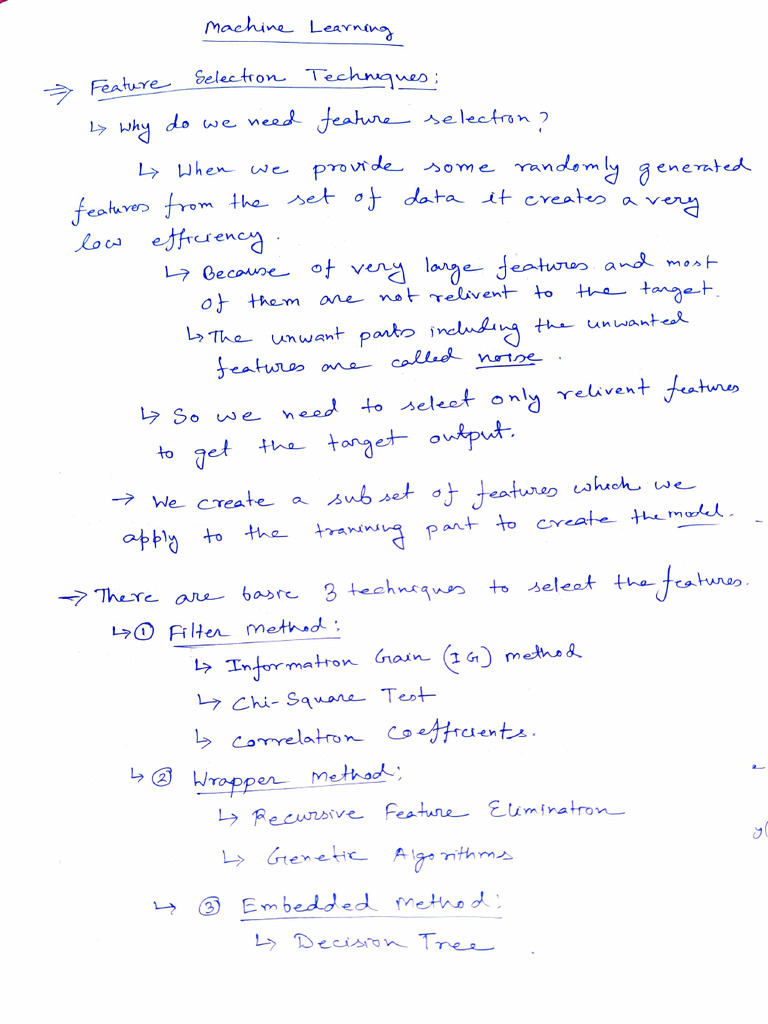 Machine Learning
⇒ Feature Selection Techniques:
↳ Why do we need feature selection?
↳ When we provide some randomly generated
features from the set of data it creates a very
low efficiency.
↳ Because of very large features and most
of them are not relivent to the target.
↳ The unwant parts including the unwanted
features are called noise.
↳ So we need to select only relivent features
to get the target output.
→ We create a sub set of features which we
apply to the tranining part to create the model.
→ There are basic 3 techniques to select the features.
↳ ① Filter Method:
↳ Information Gain (IG) method
↳ Chi-Square Test
↳ Correlation Coefficients.
↳ ② Wrapper Method:
↳ Recursive Feature Elimination
↳ Genetic Algorithms
↳ ③ Embedded Method:
↳ Decision Tree